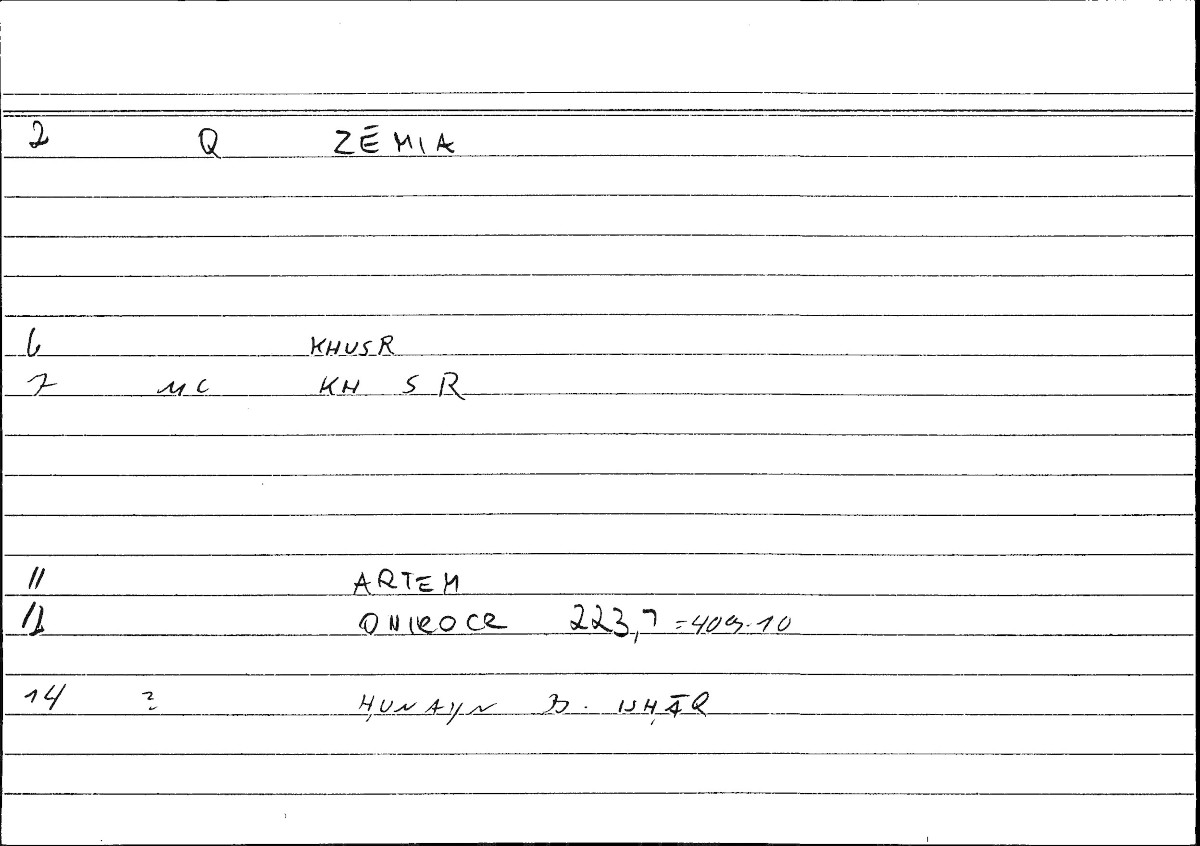 2 Q ZĒMIA
6 KHUSR
7 MC KH S R
11 ARTEM
12 ONIROCR 223,7 =409.10
14 ? ḤUNAYN B. ISḤĀQ